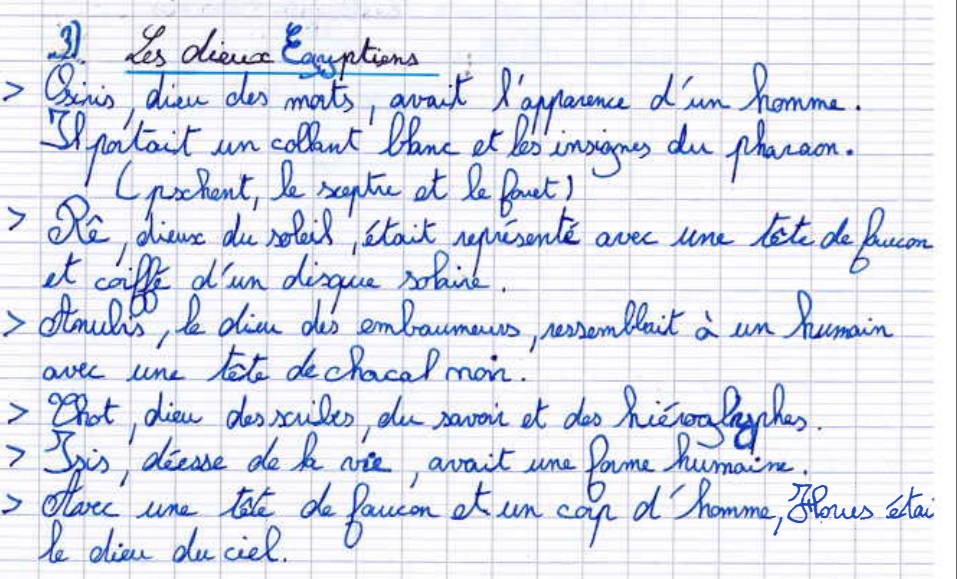 3) Les dieux Egyptiens
> Osiris, dieu des morts, avait l'apparence d'un homme.
Il portait un collant blanc et les insignes du pharaon.
(pschent, le sceptre et le fouet)
> Rê, dieux du soleil, était représenté avec une tête de faucon
et coiffé d'un disque solaire.
> Anubis, le dieu des embaumeurs, ressemblait à un humain
avec une tête de chacal noir.
> Thot, dieu des scribes, du savoir et des hiéroglyphes.
> Isis, déesse de la vie, avait une forme humaine.
> Avec une tête de faucon et un corp d'homme, Horus étai
le dieu du ciel.